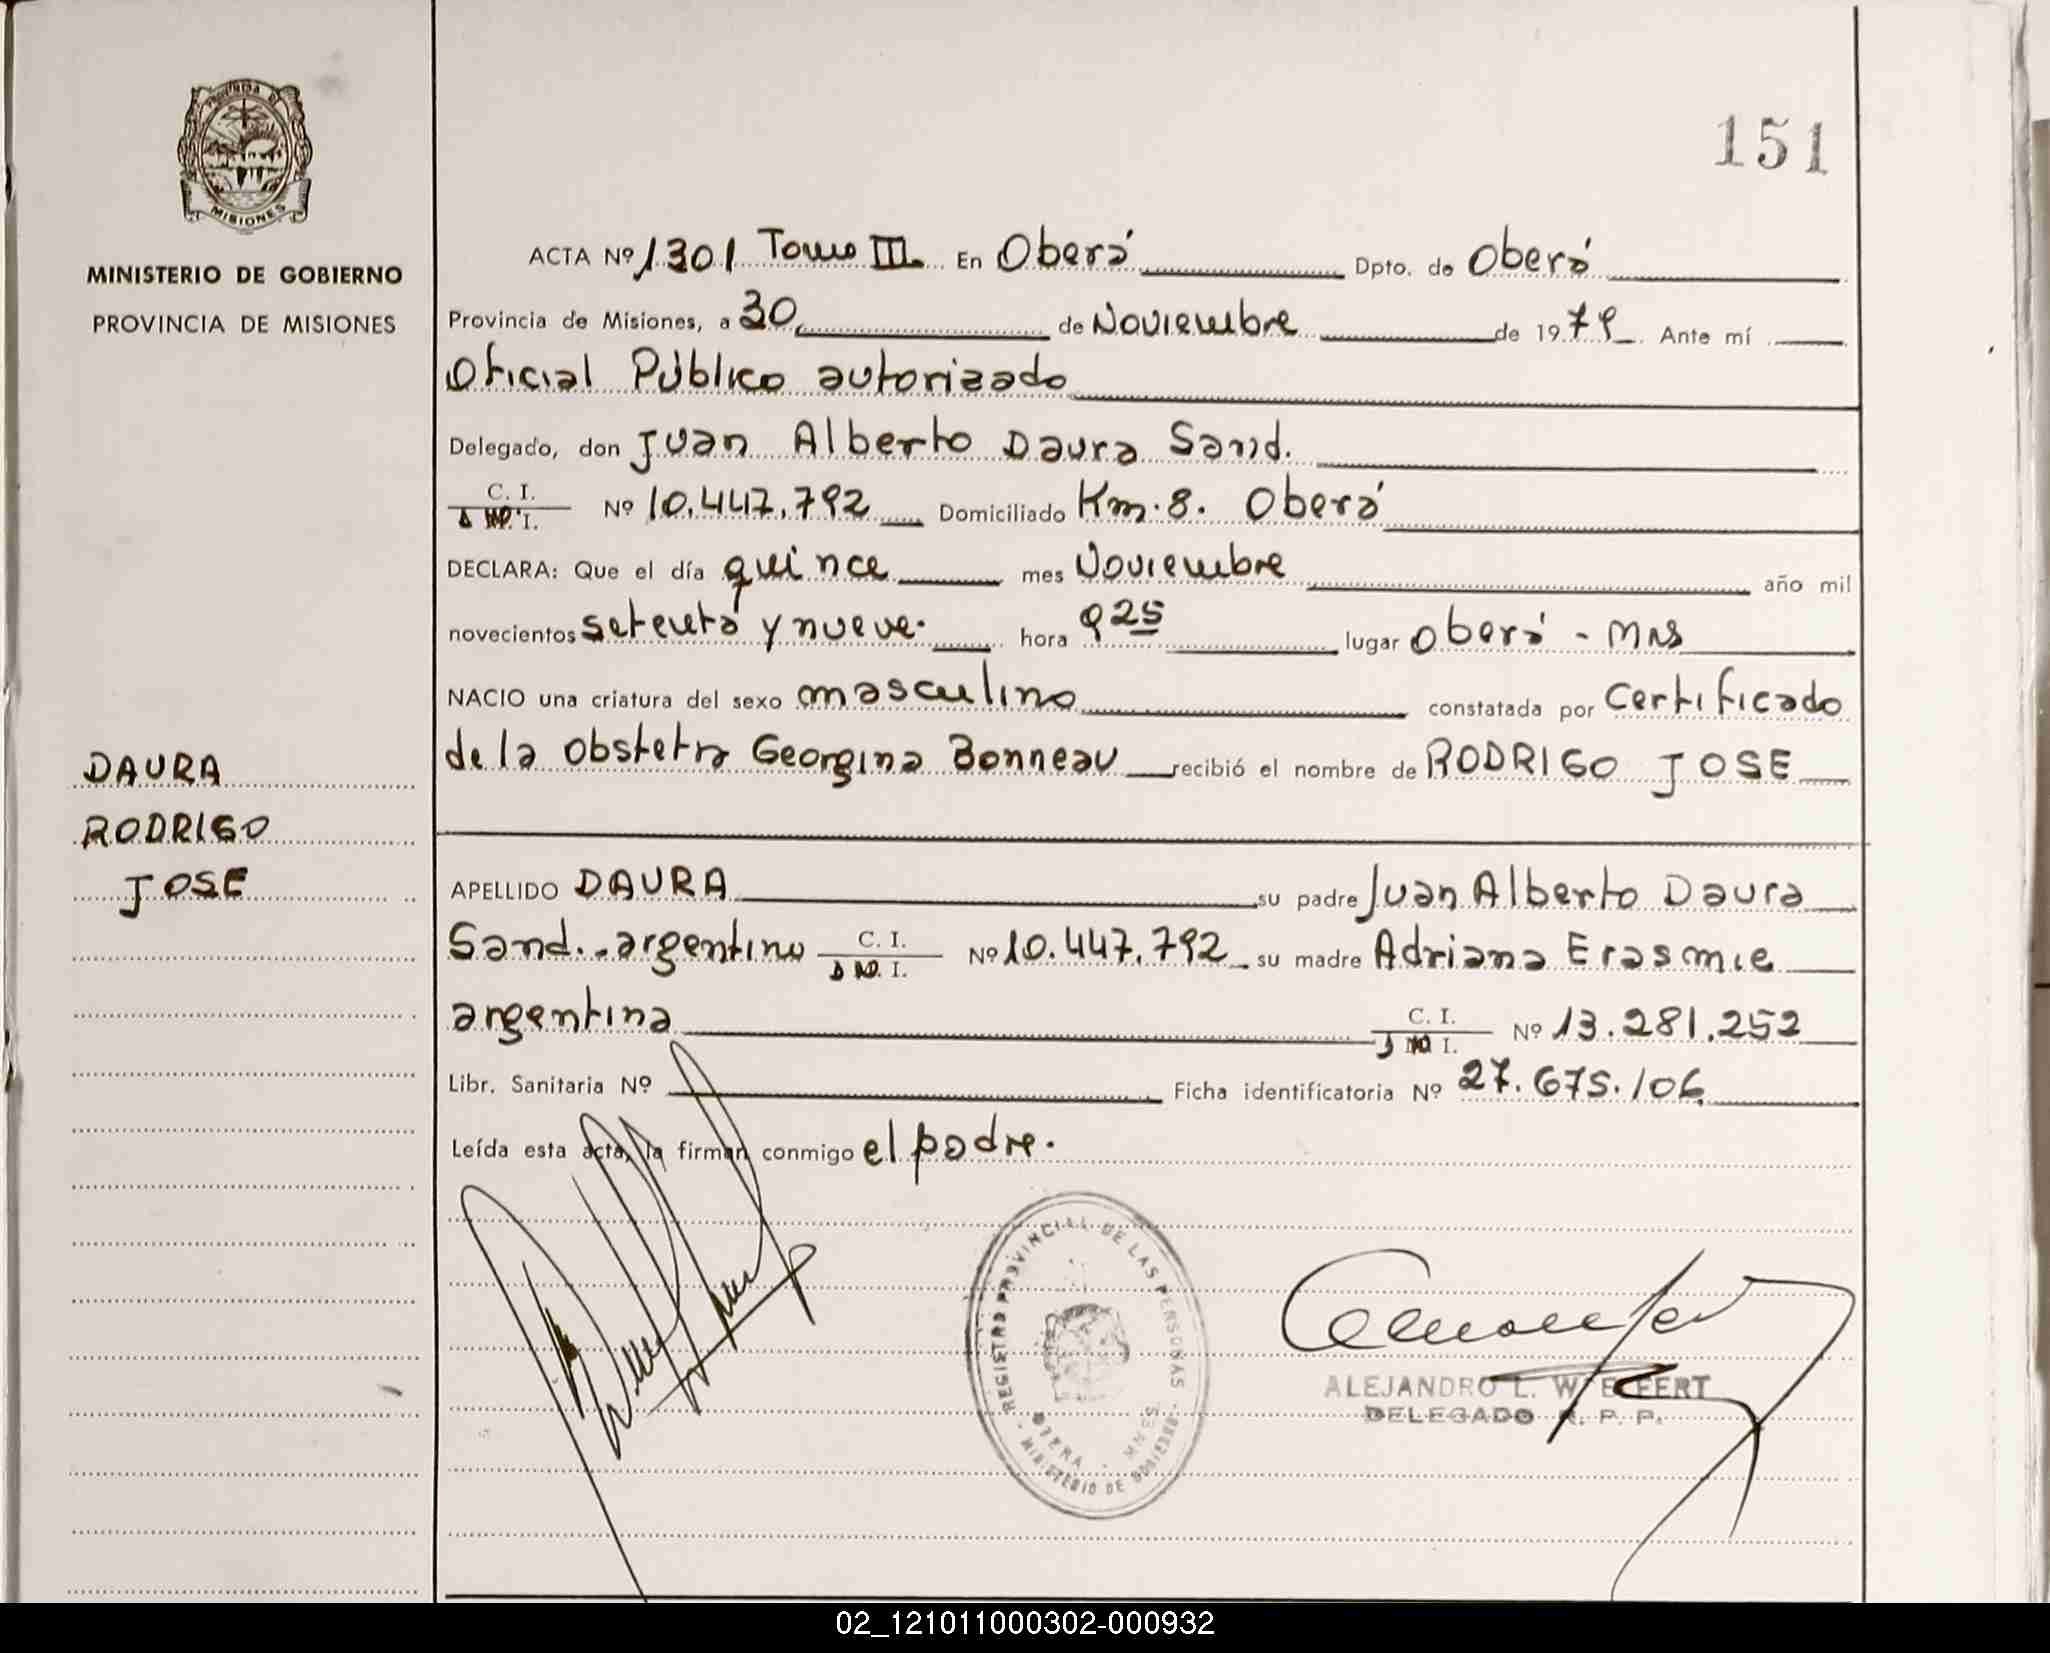 PROVINCIA DE
MISIONES
MINISTERIO DE GOBIERNO
PROVINCIA DE MISIONES
DAURA
RODRIGO
JOSE
151
ACTA Nº 1301 Tomo III En Oberá Dpto. de Oberá
Provincia de Misiones, a 30 de Noviembre de 1979 Ante mí
Oficial Público autorizado
Delegado, don Juan Alberto Daura Sand.
C. I.
D. I. Nº 10.447.792 Domiciliado Km. 8. Oberá
DECLARA: Que el día quince mes Noviembre año mil
novecientos setenta y nueve. hora 9 25 lugar Oberá - Mns
NACIO una criatura del sexo masculino constatada por certificado
de la Obstetra Georgina Bonneau recibió el nombre de RODRIGO JOSE
APELLIDO DAURA su padre Juan Alberto Daura
Sand. - argentino C. I.
D. I. Nº 10.447.792 su madre Adriana Erasmie
argentina C. I.
D. I. Nº 13.281.252
Libr. Sanitaria Nº Ficha identificatoria Nº 27.675.106
Leída esta acta, la firman conmigo el padre.
REGISTRO PROVINCIAL DE LAS PERSONAS
OBERA - MNES.
MINISTERIO DE GOBIERNO
ALEJANDRO L.
DELEGADO R. P. P.
02_121011000302-000932